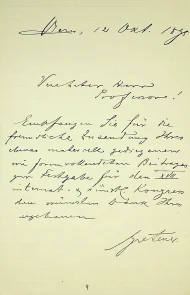 12 Okt. 18
Verehrter Herr
Professor!
Empfangen Sie für die
freundliche Zusendung Ihres
etwas materiell gediegenen
wie formvollendeten Beitrages
zur Festgabe für den XVII
internat. Kongress
den wärmsten Dank Ihres
ergebenen